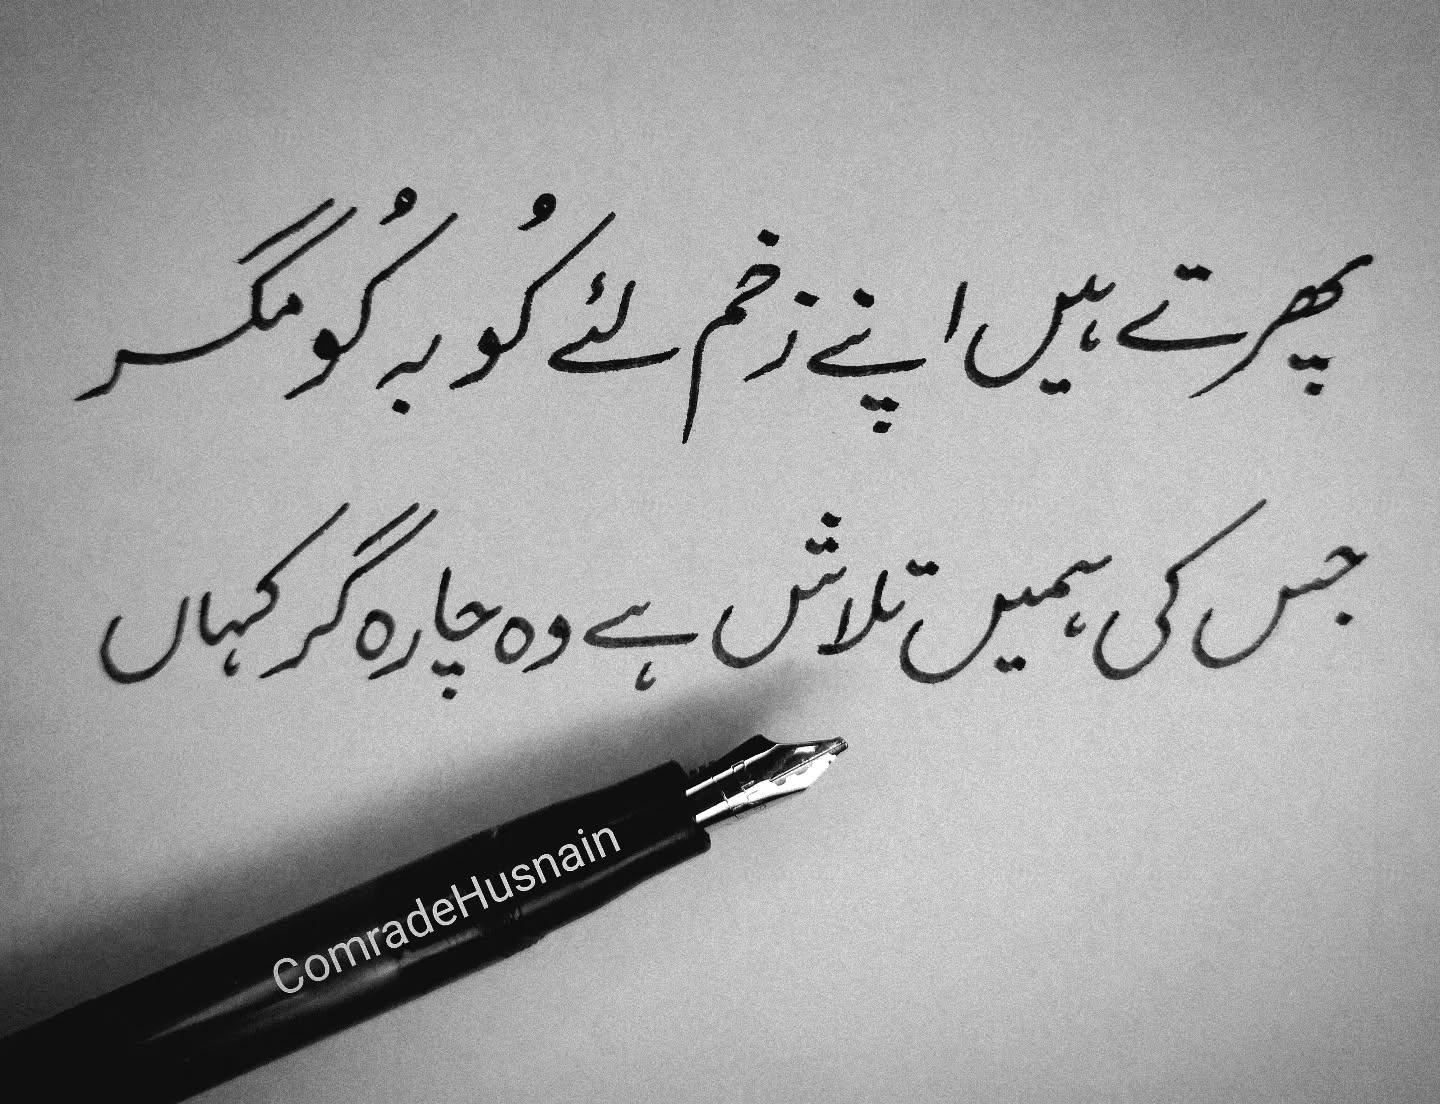 پھرتے ہیں اپنے زخم لئے کُو بہ کُو مگر
جس کی ہمیں تلاش ہے وہ چارہ گر کہاں
ComradeHusnain